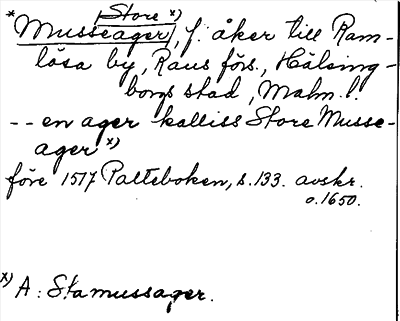 Store x)
* Musseager, f. åker till Ram-
lösa by, Raus förs., Hälsing-
borgs stad, Malm. l.
-- en ager kalliss Store Musse-
ager x)
före 1517 Palteboken, s. 133. avskr.
o. 1650.
x) A: Stamussager.